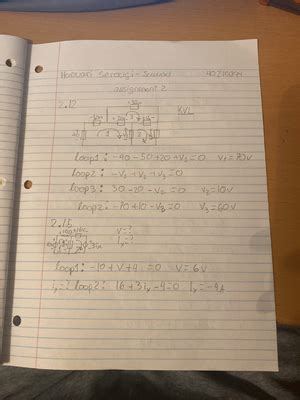 assignment 2
2.12
KVL
Loop1: -40-50+20+V₁=0 V₁=70V
Loop2: -V₁+V₂+V₃=0
Loop3: 30-20-V₂=0 V₂=10V
Loop2: -70+10-V₃=0 V₃=60V
2.15
V=?
Iₓ=?
Loop1: -10+V+4=0 V=6V
Iₓ=? Loop2: 16+3Iₓ-4=0 Iₓ=-4A